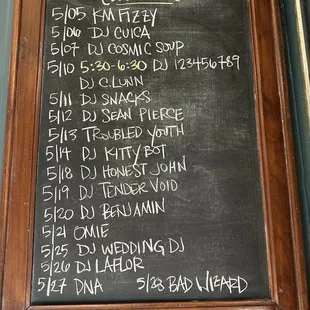 5/05 KM FIZZY
5/06 DJ CUICA
5/07 DJ COSMIC SOUP
5/10 5:30-6:30 DJ 123456789
DJ C.LUNN
5/11 DJ SNACKS
5/12 DJ SEAN PIERCE
5/13 TROUBLED YOUTH
5/14 DJ KITTYBOT
5/18 DJ HONEST JOHN
5/19 DJ TENDER VOID
5/20 DJ BENJAMIN
5/21 OMIE
5/25 DJ WEDDING DJ
5/26 DJ LAFLOR
5/27 DNA 5/28 BAD WIZARD